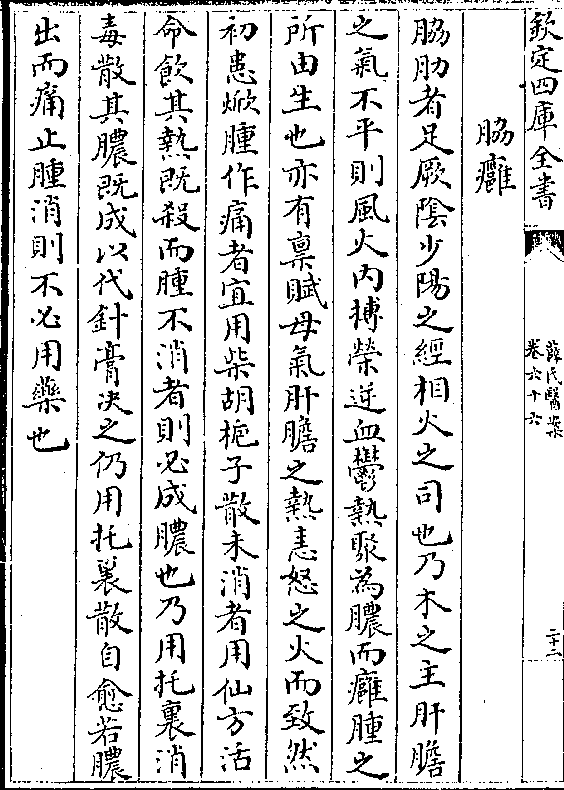 欽定四庫全書
薛氏醫案
卷六十六
二十二
脇癰
脇肋者足厥陰少陽之經相火之司也乃木之主肝膽
之氣不平則風火內搏榮逆血鬱熱聚為膿而癰腫之
所由生也亦有稟賦母氣肝膽之熱恚怒之火而致然
初患焮腫作痛者宜用柴胡梔子散未消者用仙方活
命飲其熱既殺而腫不消者則必成膿也乃用托裏消
毒散其膿既成以代針膏決之仍用托裏散自愈若膿
出而痛止腫消則不必用藥也